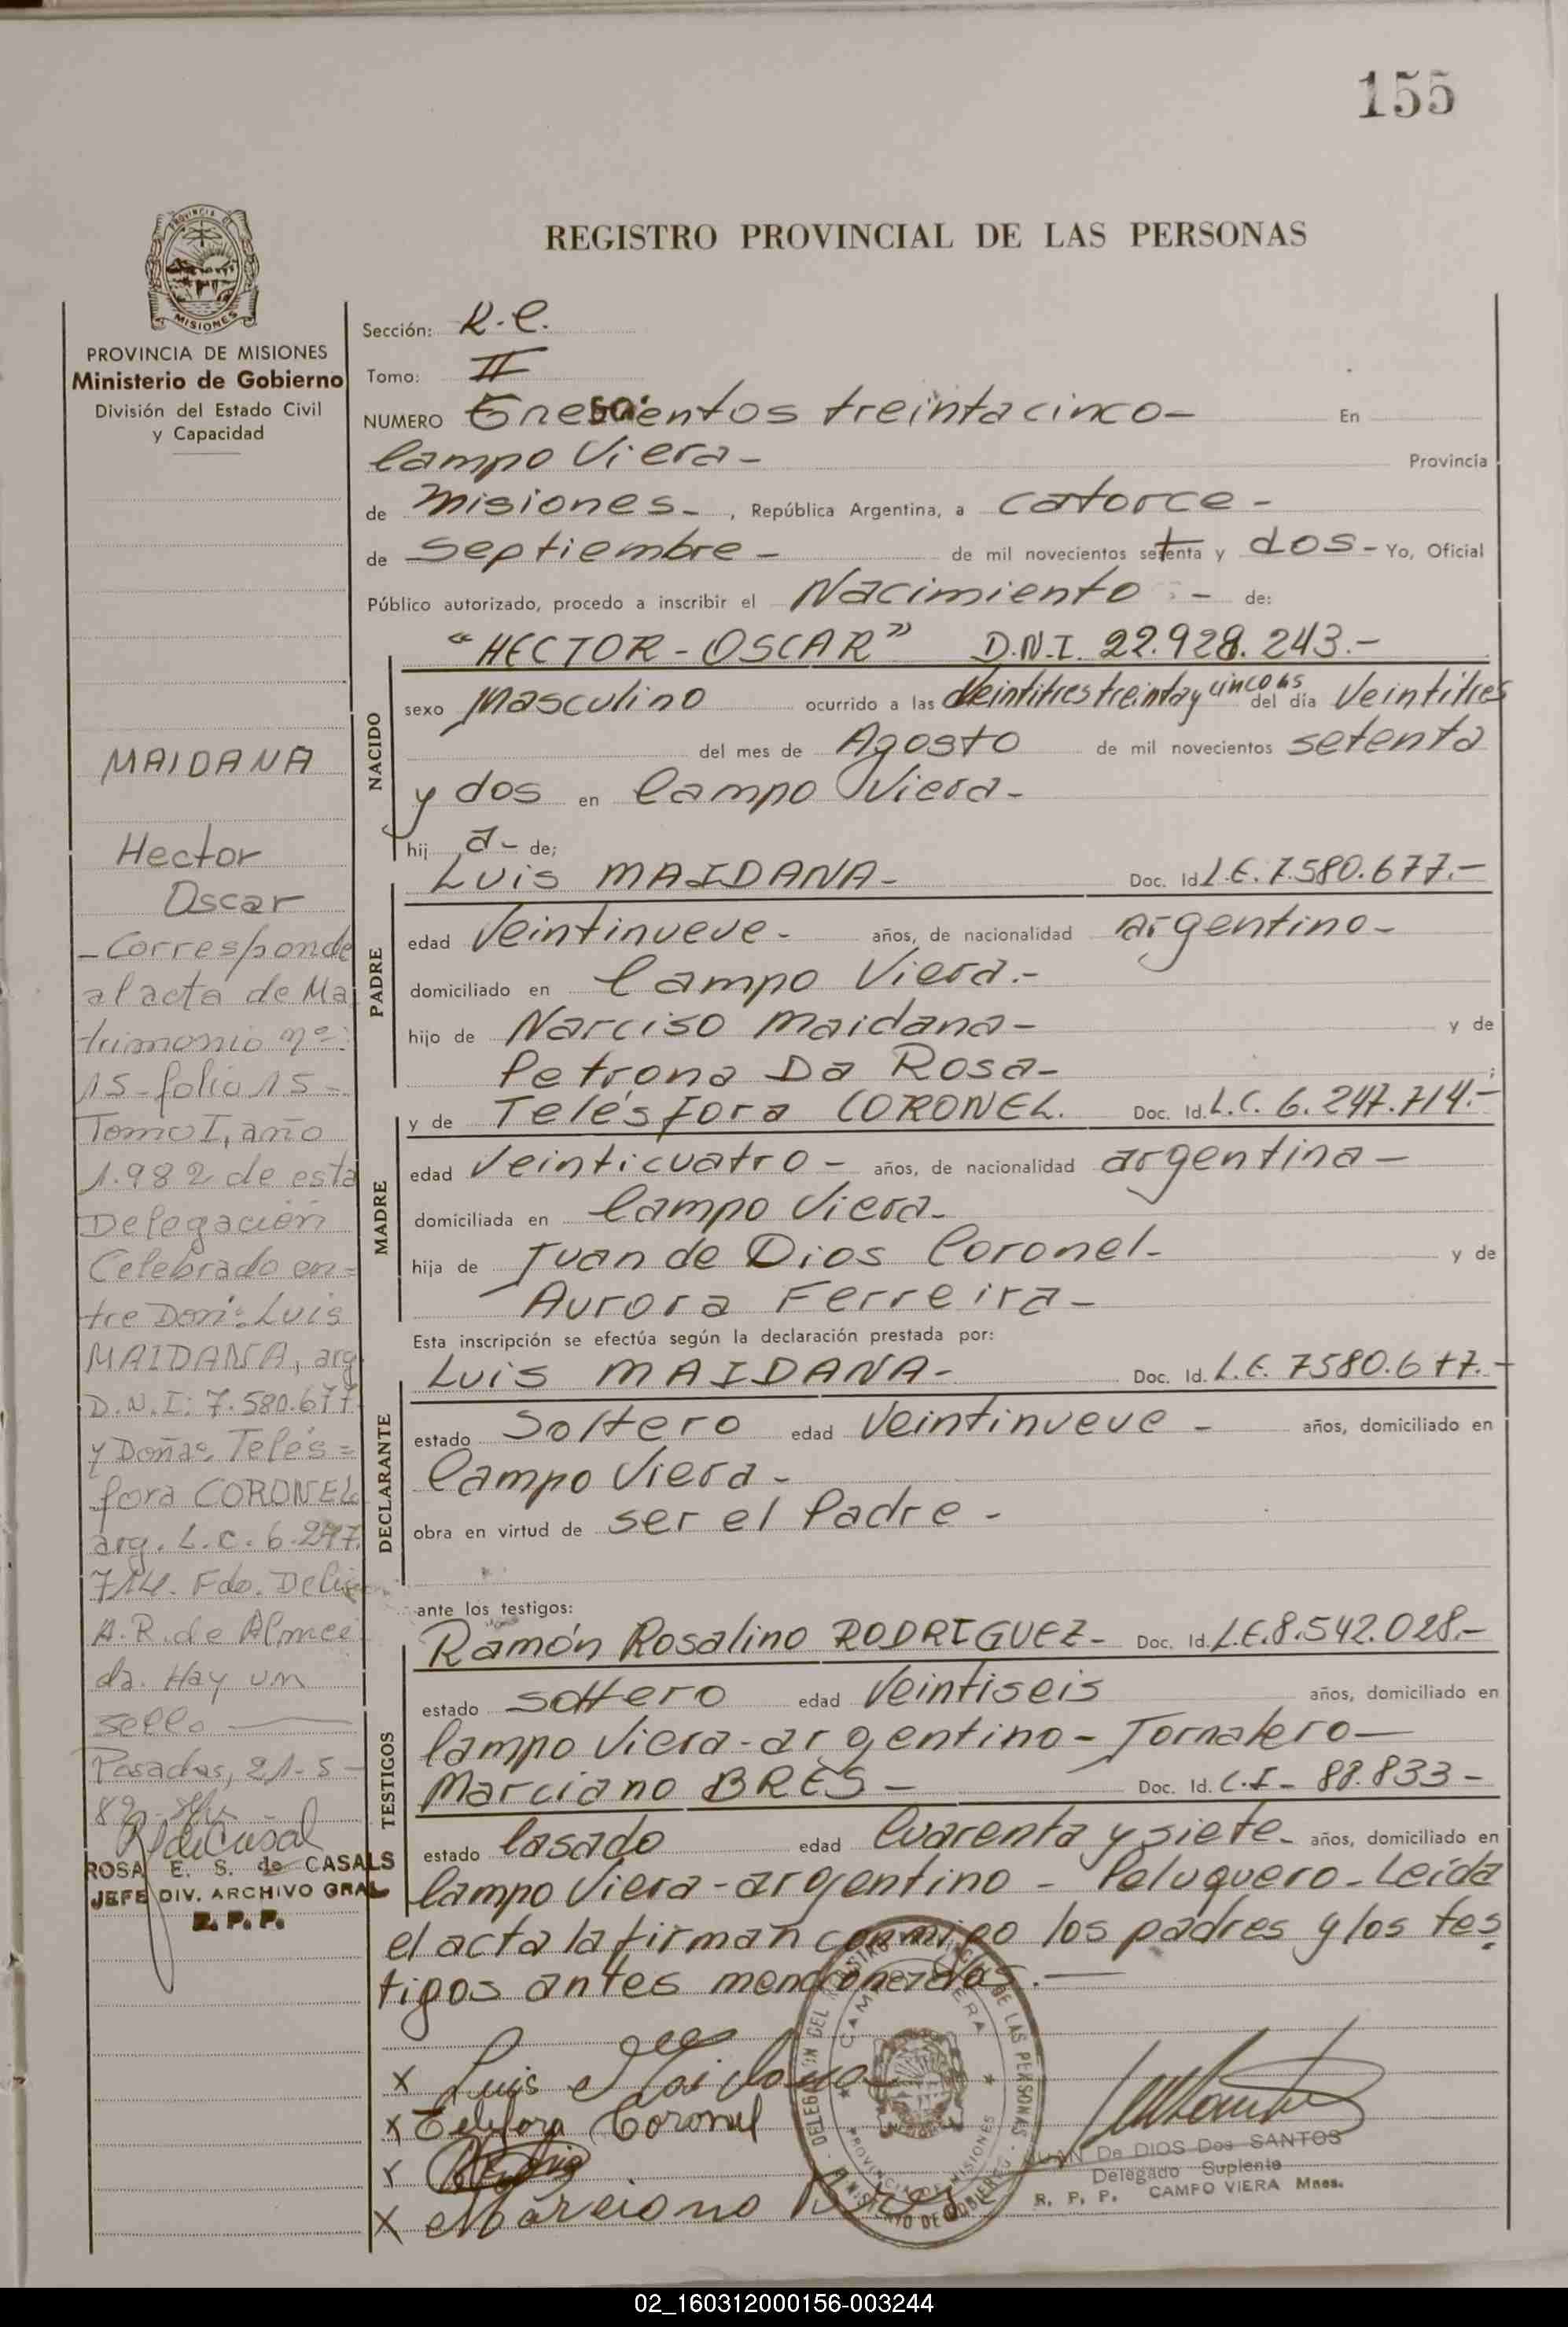 155
REGISTRO PROVINCIAL DE LAS PERSONAS
MISIONES
PROVINCIA DE MISIONES
Ministerio de Gobierno
División del Estado Civil
y Capacidad
MAIDANA
Hector
Oscar
- Corresponde
al acta de Ma
trimonio nº:
15 - folio 15 =
Tomo I, año
1.982 de esta
Delegación
Celebrado en=
tre Don: Luis
MAIDANA, arg
D.N.I: 7.580.677
y Doña: Telés=
fora CORONEL
arg. L.C. 6.247.
714. Fdo.
A.R. de Almei
da. Hay un
sello
Posadas, 21-5-
82
ROSA E. S. de CASALS
JEFE DIV. ARCHIVO GRAL
R. P. P.
Sección: R.C.
Tomo: II
NUMERO Trescientos treinta cinco- En
Campo Viera- Provincia
de Misiones-, República Argentina, a catorce-
de Septiembre- de mil novecientos setenta y dos- Yo, Oficial
Público autorizado, procedo a inscribir el Nacimiento - de:
"HECTOR-OSCAR" D.N.I. 22.928.243.-
NACIDO
sexo Masculino ocurrido a las Veintitres treinta y cinco hs del día Veintitres
del mes de Agosto de mil novecientos setenta
y dos en Campo Viera-
hij a- de;
PADRE
Luis MAIDANA- Doc. Id. L.E. 7.580.677.-
edad Veintinueve- años, de nacionalidad argentino-
domiciliado en Campo Viera.-
hijo de Narciso Maidana- y de
Petrona Da Rosa- ;
MADRE
y de Telésfora CORONEL. Doc. Id. L.C. 6.247.714.-
edad Veinticuatro- años, de nacionalidad argentina-
domiciliada en Campo Viera-
hija de Juan de Dios Coronel- y de
Aurora Ferreira-
Esta inscripción se efectúa según la declaración prestada por:
DECLARANTE
Luis MAIDANA- Doc. Id. L.E. 7580.677.-
estado Soltero edad Veintinueve- años, domiciliado en
Campo Viera-
obra en virtud de ser el Padre-
ante los testigos:
TESTIGOS
Ramón Rosalino RODRIGUEZ- Doc. Id. L.E. 8.542.028.-
estado soltero edad Veintiseis años, domiciliado en
Campo Viera-argentino- Jornalero-
Marciano BRES- Doc. Id. C.I- 88.833-
estado Casado edad Cuarenta y siete- años, domiciliado en
Campo Viera-argentino- Peluquero-Leída
el acta la firman conmigo los padres y los tes
tigos antes mencionados.-
X Luis Maidana
X Telesfora Coronel
X
X Marciano Bres
DELEGACION DEL REGISTRO PROVINCIAL DE LAS PERSONAS
CAMPO VIERA
PROVINCIA DE MISIONES
MINISTERIO DE GOBIERNO
JUAN De DIOS Dos SANTOS
Delegado Suplente
R. P. P. CAMPO VIERA Mnes.
02_160312000156-003244